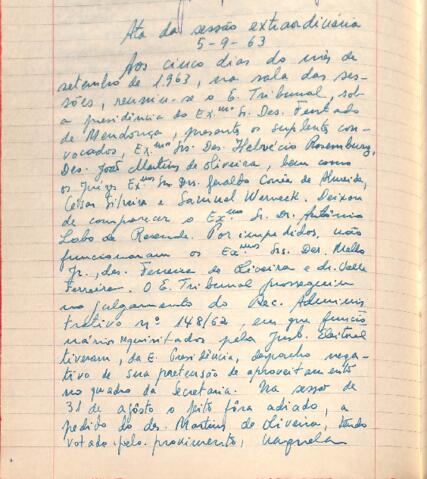 Ata da sessão extraordinária
5-9-63
Aos cinco dias do mês de
setembro de 1963, na sala das ses-
sões, reuniu-se o E. Tribunal, sob
a presidência do Ex.mo Sr. Des. Furtado
de Mendonça, presente os suplentes con-
vocados, Ex.mo Srs. Des. Helvécio Rosenburg,
Des. João Martins de Oliveira, bem como
os Juízes Ex.mos Srs. Drs. Geraldo Corrêa de Almeida,
César Silveira e Samuel Werneck. Deixou
de comparecer o Ex.mo Sr. Dr. Antônio
Lobo de Resende. Por impedidos, não
funcionaram os Ex.mos Srs. Des. Mello
Jr., des. Ferreira de Oliveira e dr. Valle
Ferreira. O E. Tribunal prosseguiu
no julgamento do Rec. Adminis
trativo nº 148/62, em que funcio
nários requisitados pela Just. Eleitoral
tiveram, da E. Presidência, despacho nega-
tivo de sua pretensão de aproveitamento
no quadro da Secretaria. Na sessão de
31 de agôsto o feito fôra adiado, a
pedido do des. Martins de Oliveira, tendo
votado pelo provimento, naquela